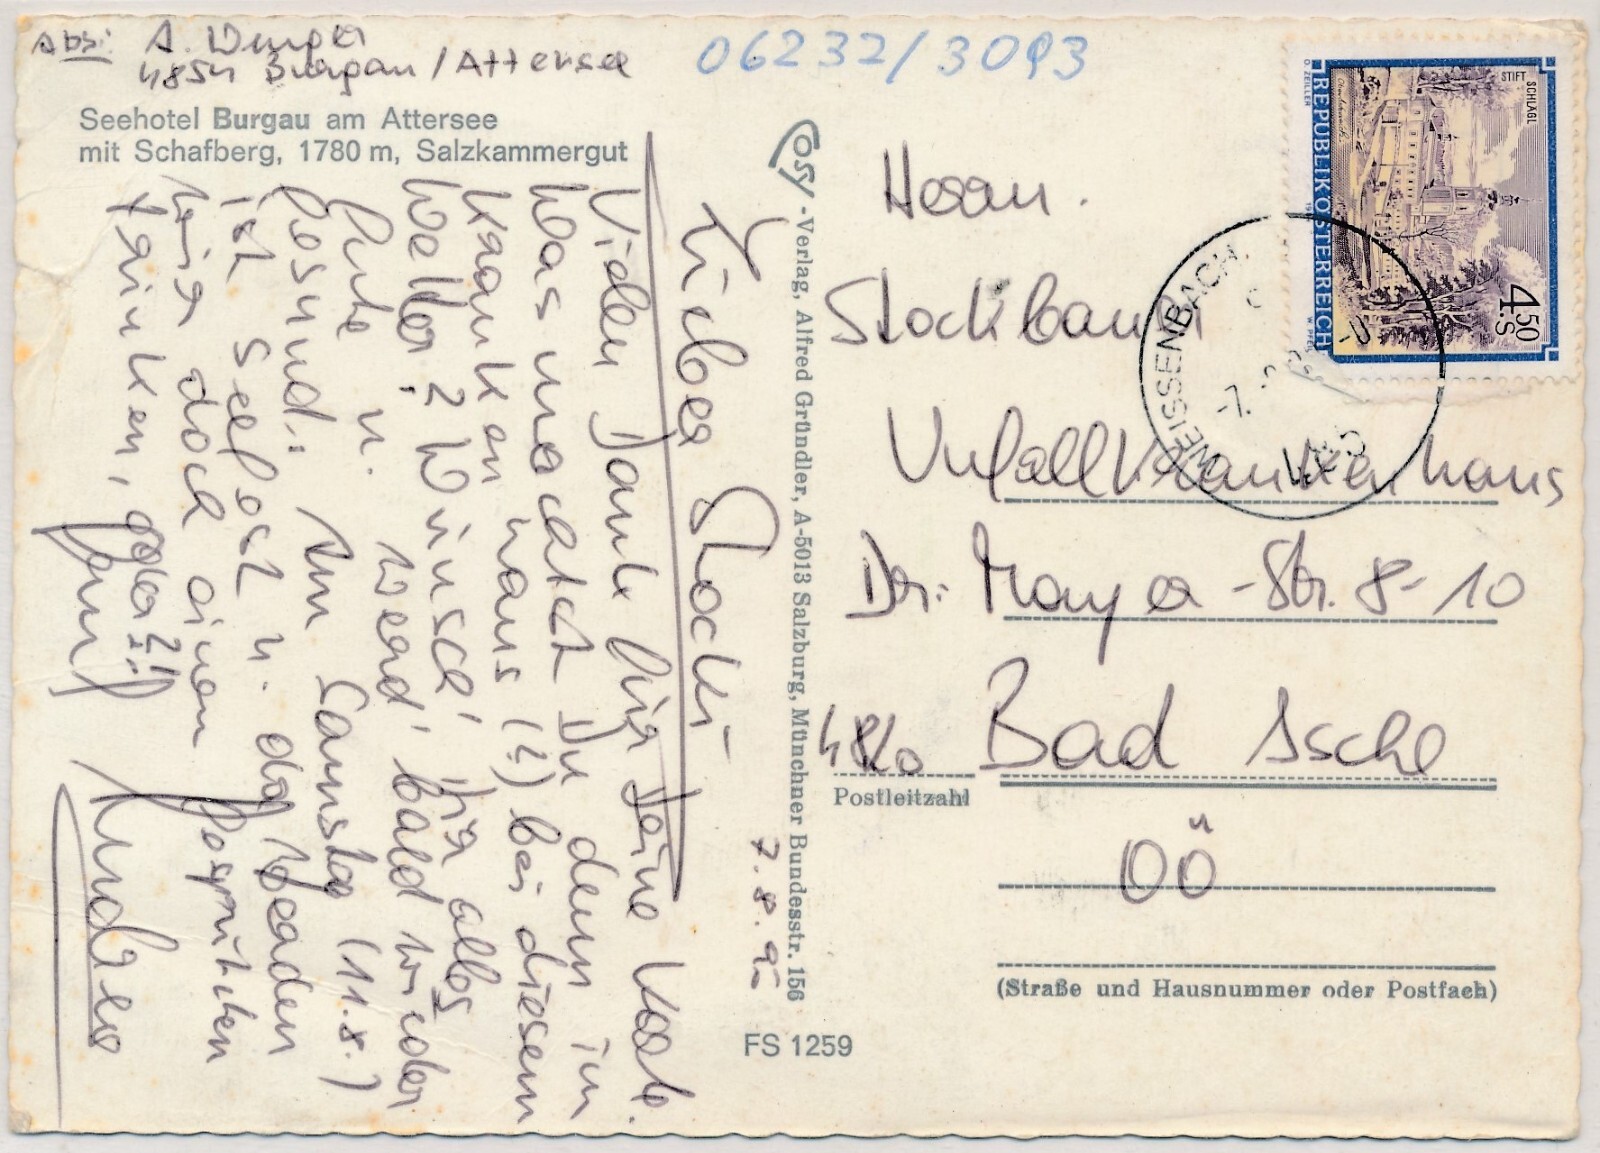 Abs: A.
4854 Burgau / Attersee
06232/3093
Seehotel Burgau am Attersee
mit Schafberg, 1780 m, Salzkammergut
Lieber Stocki
Vielen Dank für Deine Karte.
Was machst Du denn im
Krankenhaus (?) bei diesem
Wetter? Wünsch' Dir alles
Gute u. werd' bald wieder
gesund. Am Samstag (11.8.)
ist Seefest u. da werden
wir doch einen Gespritzten
trinken, oder?!
7.8.90
Cosy-Verlag, Alfred Gründler, A-5013 Salzburg, Münchner Bundesstr. 156
FS 1259
STIFT SCHLÄGL
REPUBLIK ÖSTERREICH
4.50
S
O. ZEILLER
W. PFEILER
WEISSENBACH
-7.
Herrn
Stockbauer
Unfallkrankenhaus
Dr. Mayer-Str. 8-10
4820 Bad Ischl
Postleitzahl
OÖ
(Straße und Hausnummer oder Postfach)